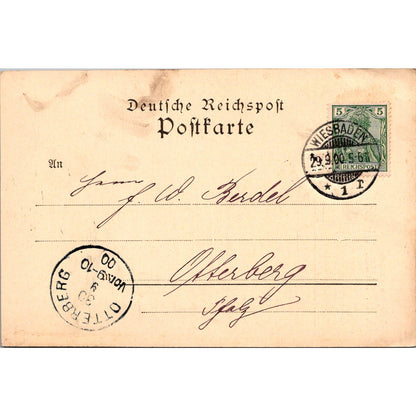 Deutsche Reichspost
Postkarte
5 5
REICHSPOST
WIESBADEN
29.9.00.5-6N
* 1 r
An
Herrn
F. W. Berdel
Otterberg
Pfalz
OTTERBERG
30
9
VORM9-10
00